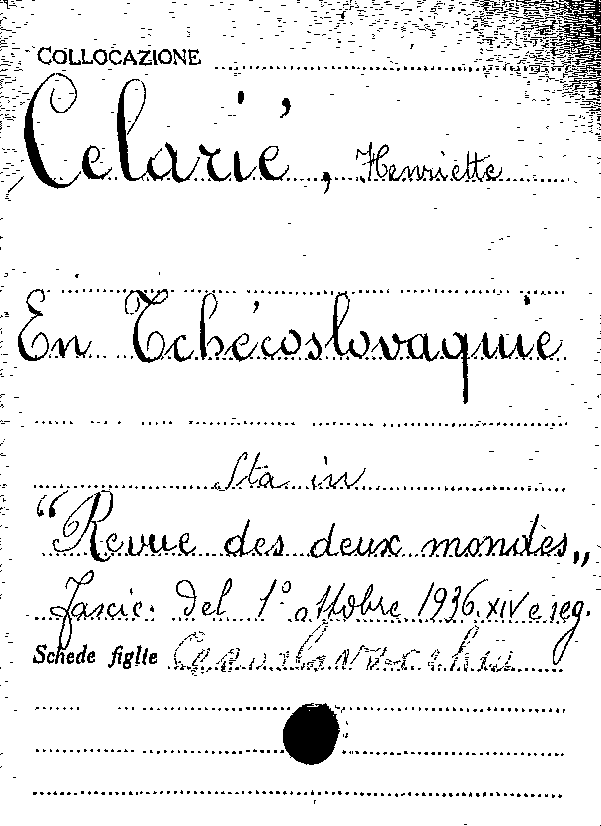 COLLOCAZIONE
Celarié, Henriette
En Tchécoslovaquie
Sta in
"Revue des deux mondes„
fascic. del 1° ottobre 1936.XIV e seg.
Schede figlie Cecoslovacchia